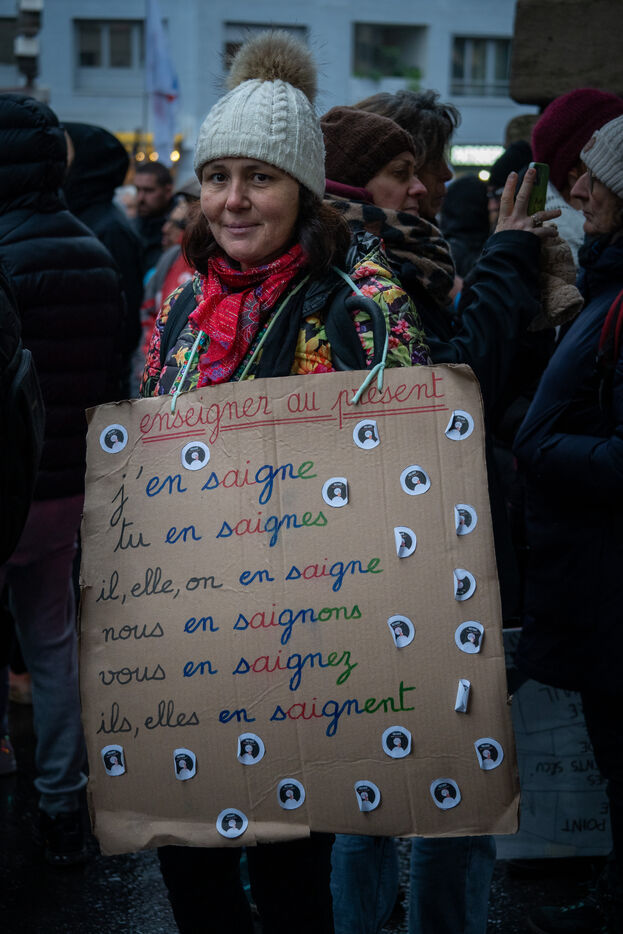 enseigner au présent
j'en saigne
tu en saignes
il, elle, on en saigne
nous en saignons
vous en saignez
ils, elles en saignent
POINT